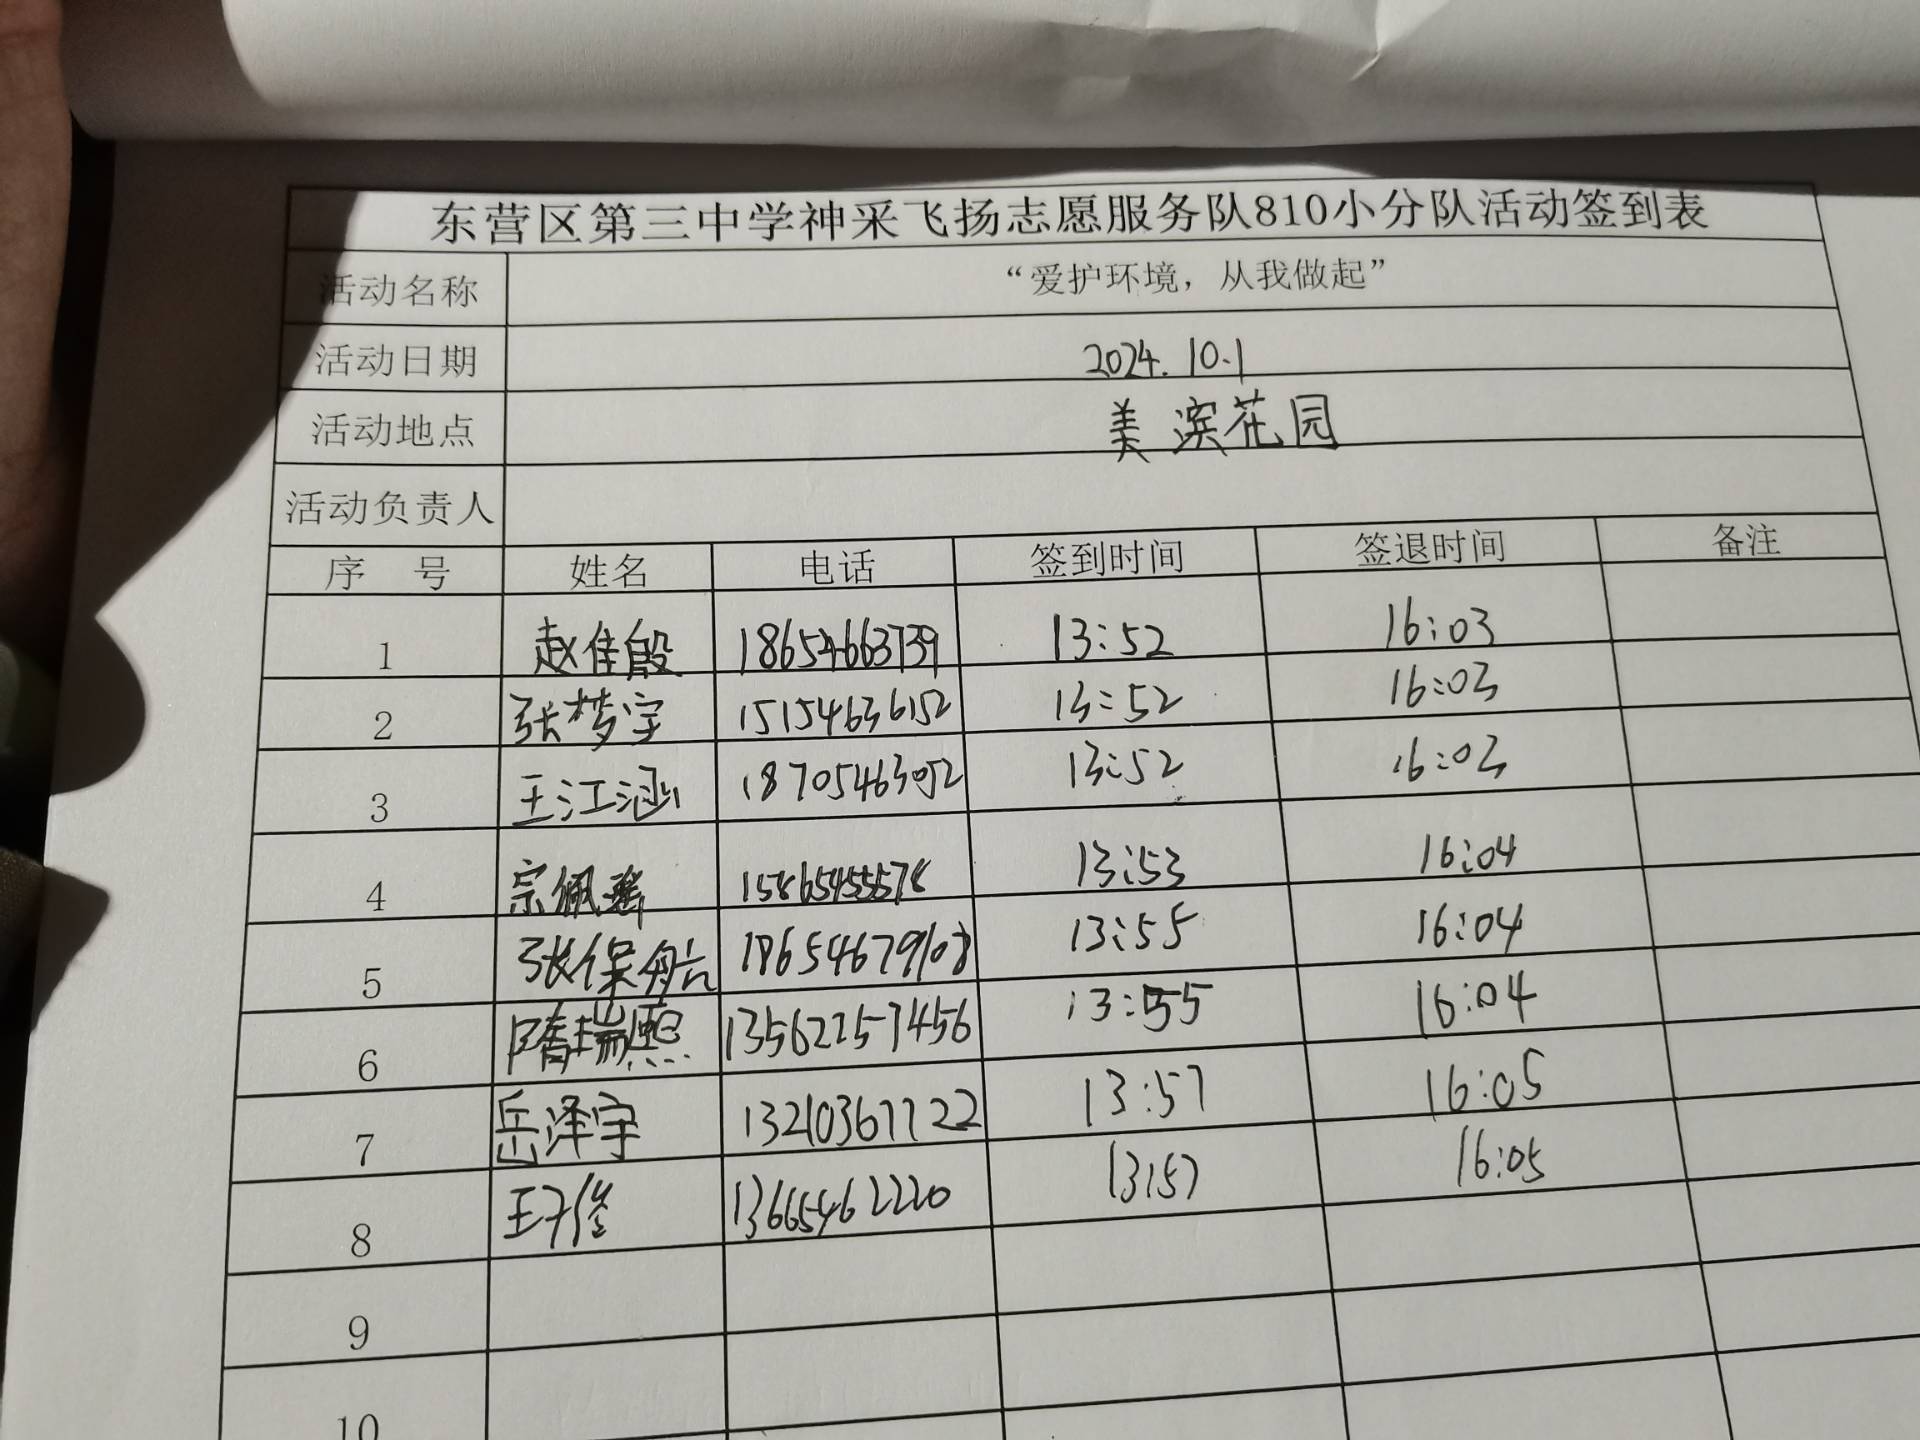 东营区第三中学神采飞扬志愿服务队810小分队活动签到表
活动名称 “爱护环境，从我做起”
活动日期 2024.10.1
活动地点 美滨花园
活动负责人
序 号 姓名 电话 签到时间 签退时间 备注
1 赵佳殷 18654663739 13:52 16:03
2 张梦宇 15154636152 13:52 16:03
3 王江涵 18705463052 13:52 16:03
4 宗佩瑶 15865455578 13:53 16:04
5 张保航 18654679108 13:55 16:04
6 隋瑞熙 13562257456 13:55 16:04
7 岳泽宇 13210367722 13:57 16:05
8 王子俊 13665462220 13:57 16:05
9
10